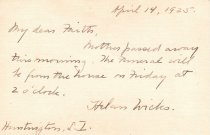 April 14, 1925.
My dear Faith,
Mother passed away
this morning. The funeral will
be from the house on Friday at
2 o'clock.
Helen Wicks.
Huntington, L.I.